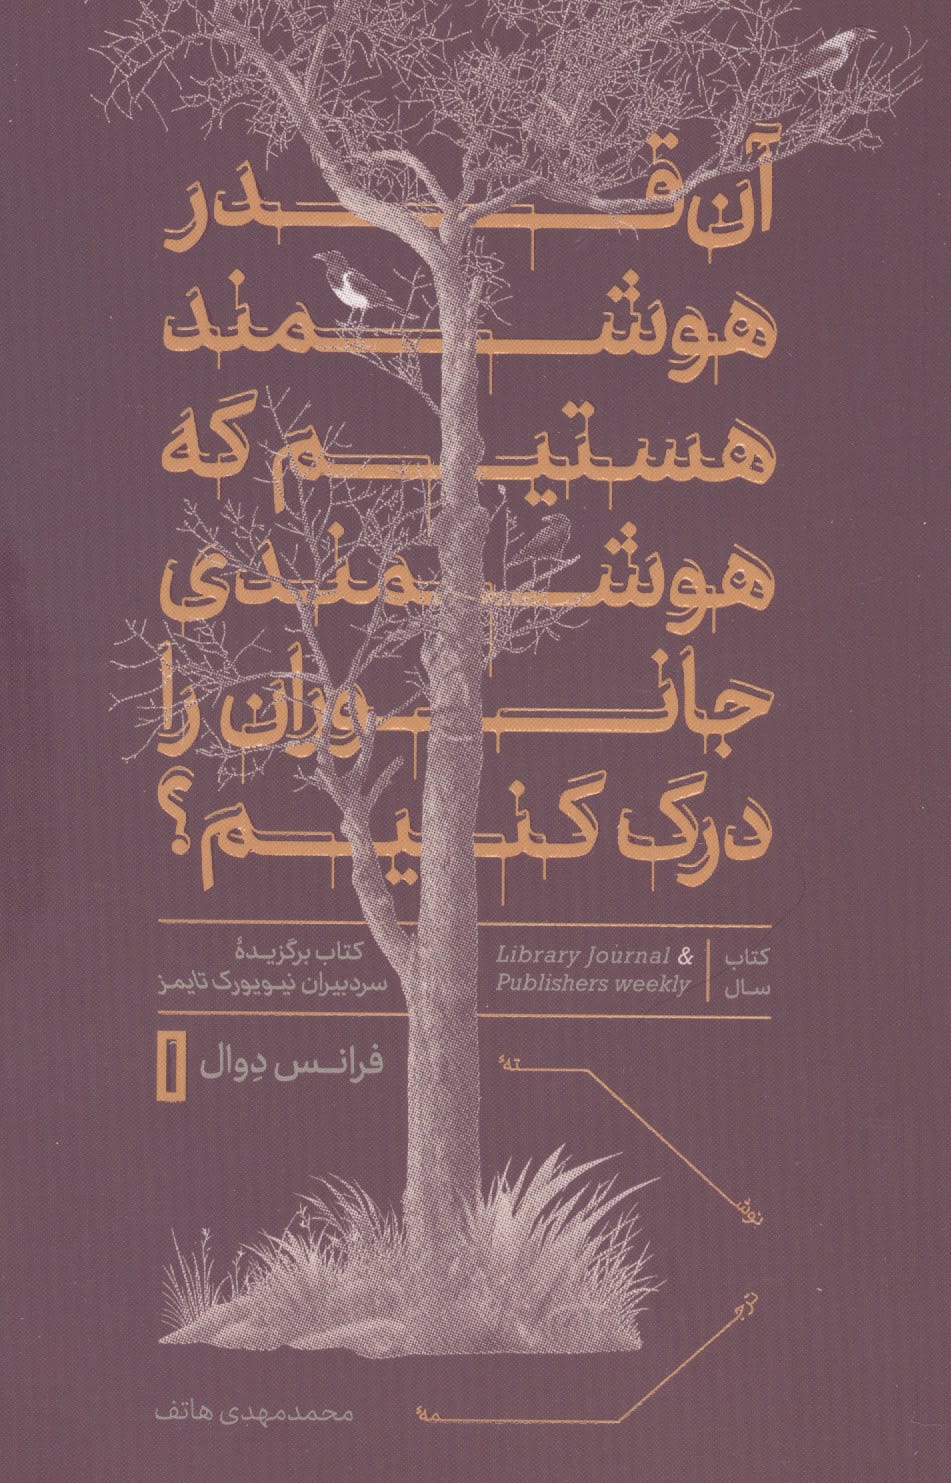 آن‌قدر
هوشمند
هستیم که
هوشمندی
جانوران را
درک کنیم؟
کتاب
سال
Library Journal &
Publishers weekly
کتاب برگزیدهٔ
سردبیران نیویورک تایمز
نوشتهٔ
فرانس دِوال
ترجمهٔ
محمدمهدی هاتف